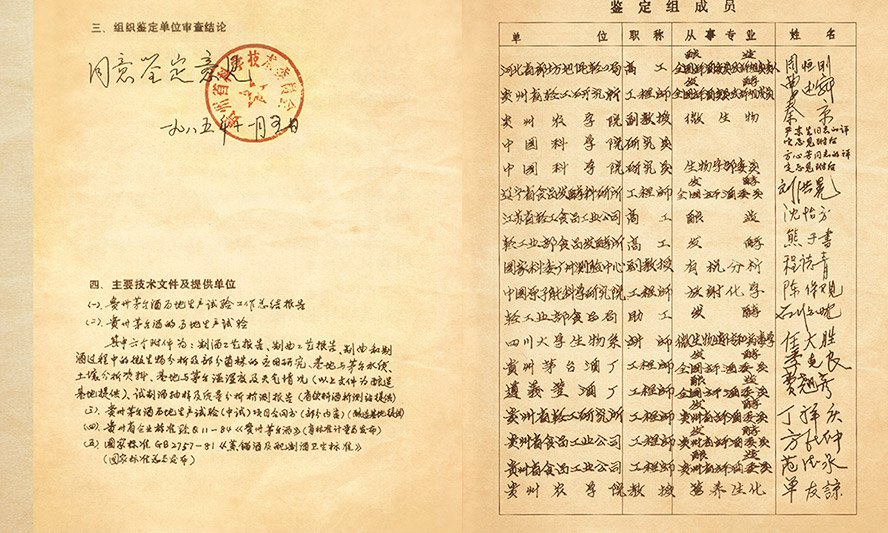 三、组织鉴定单位审查结论
同意鉴定意见
一九八五年十一月五日
四、主要技术文件及提供单位
(一)、贵州茅台酒易地生产试验工作总结报告
(二)、贵州茅台酒的易地生产试验
其中六个附件为:制酒工艺报告、制曲工艺报告、制曲和制
酒过程中的微生物分析及部分菌株的应用研究、基地与茅台水质、
土壤分析资料、基地与茅台温湿度及天气情况(以上文件为酿造
基地提供)、试制酒抽样及质量分析检测报告(省饮料酒检测站提供)
(三)、贵州茅台酒易地生产试验(中试)项目合同书(部分内容)(酿造基地提供)
(四)、贵州省企业标准黔Q11-84《贵州茅台酒》(省标准计量局发布)
(五)、国家标准GB2757-81《蒸馏酒及配制酒卫生标准》
(国家标准总局发布)
鉴定组成员
单位 职称 从事专业 姓名
高工 酿造 周恒刚
贵州省轻工研究所 工程师 发酵 全国评酒委员
贵州农学院 副教授 微生物 秦京
中国科学院 研究员
中国科学院 研究员 生物学部委员
辽宁省食品发酵科研所 工程师 发酵 全国评酒委员 刘洪晃
江苏省轻工食品工业公司 高工 酿造 沈怡方
轻工业部食品发酵所 高工 发酵 熊子書
国家科委广州测试中心 副教授 有机分析 程志青
中国原子能科学研究院 放射化学
轻工业部食品局 助工 发酵
四川大学生物系 讲师 任大胜
贵州茅台酒厂 工程师 发酵 全国评酒委员 季克良
遵义董酒厂 工程师 酿造 全国评酒委员
贵州省轻工研究所 工程师 发酵 全国评酒委员 丁祥庆
贵州省食品工业公司 工程师 发酵 全国评酒委员
贵州省食品工业公司 工程师 发酵 全国评酒委员
贵州农学院 教授 营养生化 单友諒